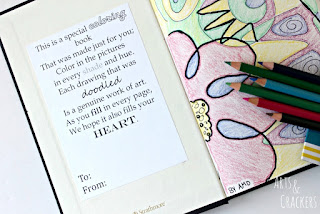 This is a special coloring
book
That was made just for you;
Color in the pictures
in every shade and hue.
Each drawing that was
doodled
Is a genuine work of art.
As you fill in every page,
We hope it also fills your
HEART.
To:
From:
Strathmore
BY AMD
ARTS &
CRACKERS